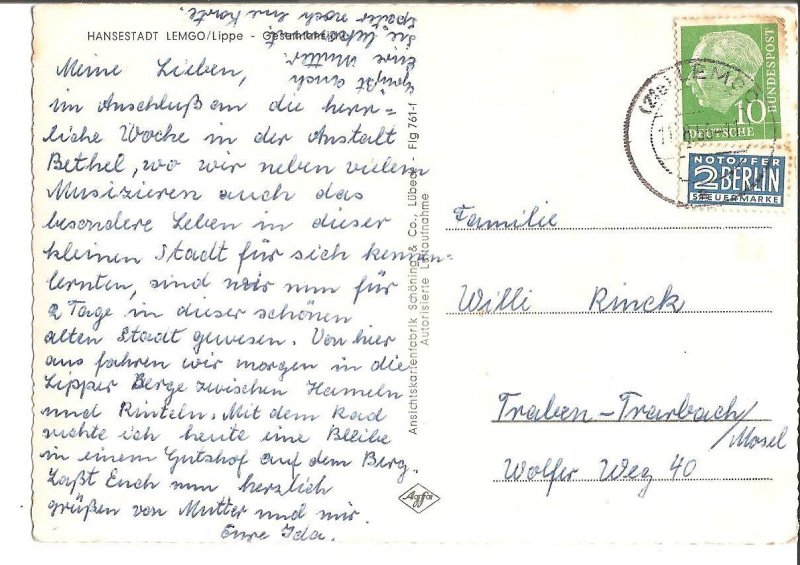 HANSESTADT LEMGO/Lippe - Gesamtansicht
Meine Lieben,
im Anschluß an die herr=
liche Woche in der Anstalt
Bethel, wo wir neben vielem
Musizieren auch das
besondere Leben in dieser
kleinen Stadt für sich kennen-
lernten, sind wir nun für
2 Tage in dieser schönen
alten Stadt gewesen. Von hier
aus fahren wir morgen in die
Lipper Berge zwischen Hameln
und Rinteln. Mit dem Rad
suchte ich heute eine Bleibe
in einem Gutshof auf dem Berg.
Laßt Euch nun herzlich
grüßen von Mutter und mir.
Eure Ida.
Grüßt auch
Eure Mutter
die liefert
später noch eine Karte.
Ansichtskartenfabrik Schöning & Co., Lübeck - Flg 761-f
Autorisierte Luftaufnahme
Agfa
10
DEUTSCHE
BUNDESPOST
NOTOPFER
2 BERLIN
STEUERMARKE
LEMGO
Familie
Willi Rinck
Traben-Trarbach/
Mosel
Wolfer Weg 40